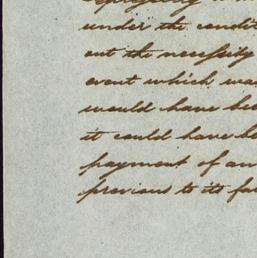 under the condit
out the necessity
event which wa
would have be
it could have be
payment of an
previous to its fa